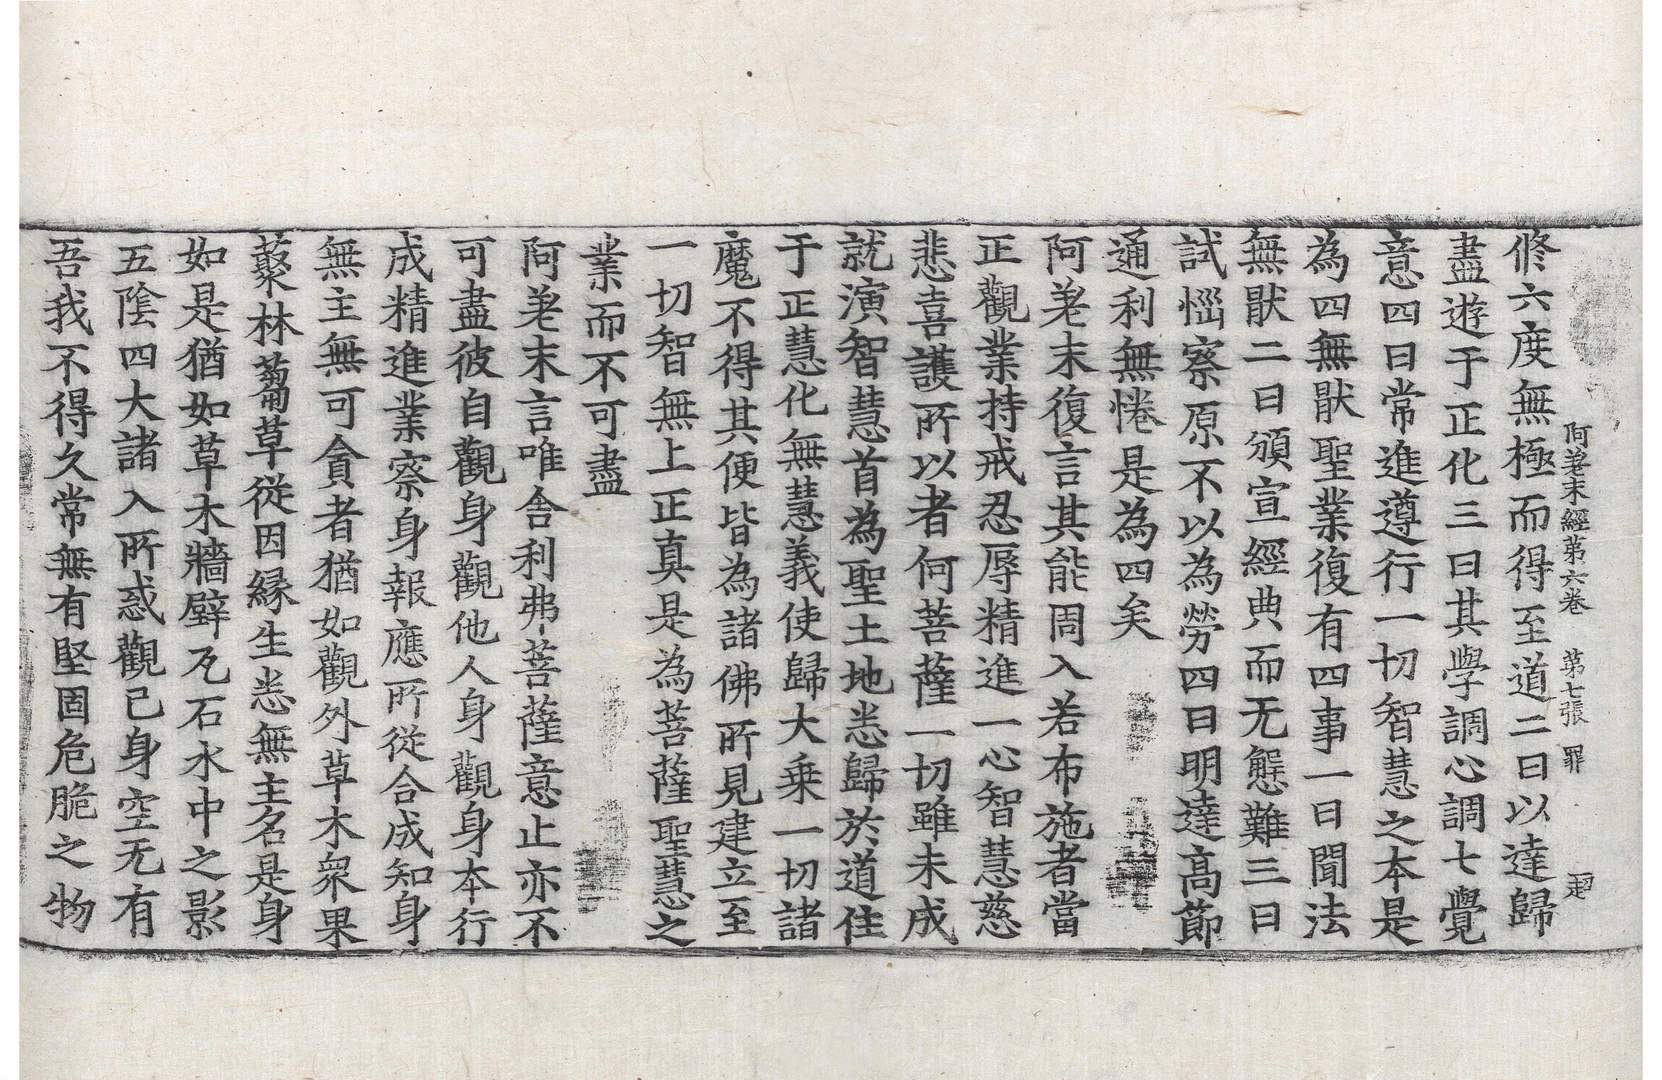 阿差末經第六卷 第七張 罪
修六度無極而得至道二曰以達歸
盡遊于正化三曰其學調心調七覺
意四曰常進遵行一切智慧之本是
為四無猒聖業復有四事一曰聞法
無猒二曰頒宣經典而无懈難三曰
試惱察原不以為勞四曰明達高節
通利無惓是為四矣
阿差末復言其能周入若布施者當
正觀業持戒忍辱精進一心智慧慈
悲喜護所以者何菩薩一切雖未成
就演智慧首為聖土地悉歸於道住
于正慧化無慧義使歸大乗一切諸
魔不得其便皆為諸佛所見建立至
一切智無上正真是為菩薩聖慧之
業而不可盡
阿差末言唯舎利弗菩薩意止亦不
可盡彼自觀身觀他人身觀身本行
成精進業察身報應所從合成知身
無主無可貪者猶如觀外草木衆果
藂林蔔草從因縁生悉無主名是身
如是猶如草木牆壁瓦石水中之影
五陰四大諸入所惑觀已身空无有
吾我不得久常無有堅固危脆之物